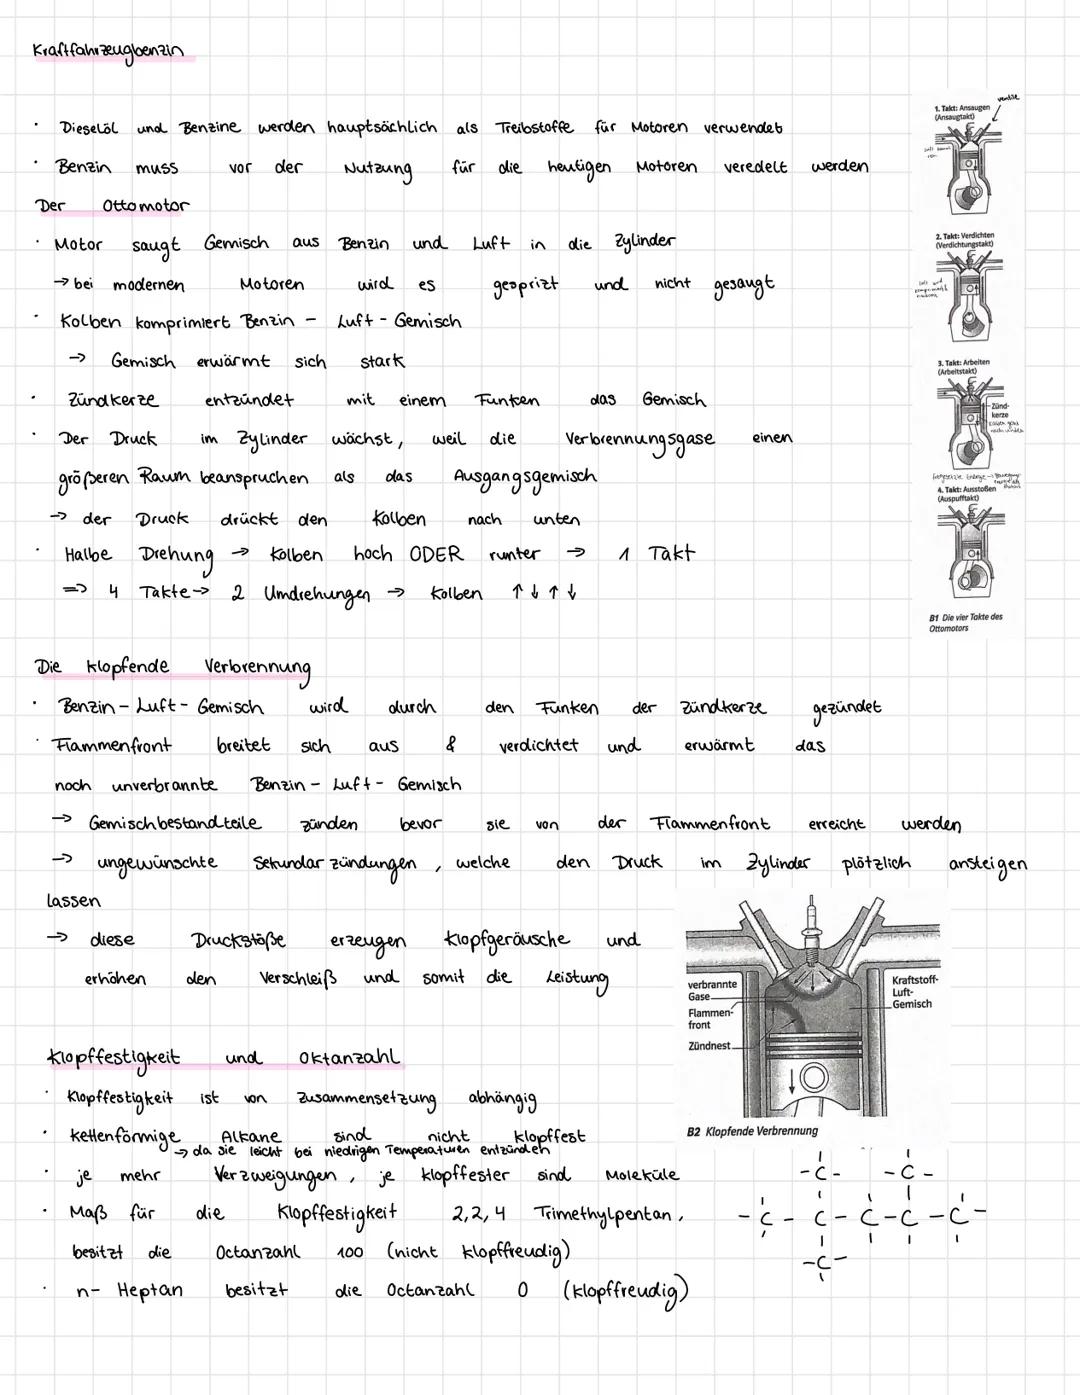 Kraftfahrzeugbenzin
· Dieselöl und Benzine werden hauptsächlich als Treibstoffe für Motoren verwendet
· Benzin muss vor der Nutzung für die heutigen Motoren veredelt werden
Der Ottomotor
· Motor saugt Gemisch aus Benzin und Luft in die Zylinder
→ bei modernen Motoren wird es gesprizt und nicht gesaugt
· Kolben komprimiert Benzin - Luft - Gemisch
→ Gemisch erwärmt sich stark
· Zündkerze entzündet mit einem Funken das Gemisch
· Der Druck im Zylinder wächst, weil die Verbrennungsgase einen
größeren Raum beanspruchen als das Ausgangsgemisch
→ der Druck drückt den Kolben nach unten
· Halbe Drehung → Kolben hoch ODER runter → 1 Takt
=> 4 Takte → 2 Umdrehungen → Kolben ↑↓↑↓
ventile
1. Takt: Ansaugen
(Ansaugtakt)
2. Takt: Verdichten
(Verdichtungstakt)
3. Takt: Arbeiten
(Arbeitstakt)
Zünd-
kerze
4. Takt: Ausstoßen
(Auspufftakt)
B1 Die vier Takte des
Ottomotors
Die klopfende Verbrennung
· Benzin - Luft - Gemisch wird durch den Funken der Zündkerze gezündet
· Flammenfront breitet sich aus & verdichtet und erwärmt das
noch unverbrannte Benzin - Luft - Gemisch
→ Gemischbestandteile zünden bevor sie von der Flammenfront erreicht werden
→ ungewünschte Sekundarzündungen, welche den Druck im Zylinder plötzlich ansteigen
lassen
→ diese Druckstöße erzeugen Klopfgeräusche und
erhöhen den Verschleiß und somit die Leistung
verbrannte
Gase
Flammen-
front
Zündnest
Kraftstoff-
Luft-
Gemisch
B2 Klopfende Verbrennung
Klopffestigkeit und Oktanzahl
· Klopffestigkeit ist von Zusammensetzung abhängig
· kettenförmige Alkane sind nicht klopffest
→ da sie leicht bei niedrigen Temperaturen entzünden
· je mehr Verzweigungen, je klopffester sind Moleküle
· Maß für die Klopffestigkeit 2,2,4 Trimethylpentan,
besitzt die Octanzahl 100 (nicht klopffreudig)
· n- Heptan besitzt die Octanzahl 0 (klopffreudig)
-C- -C-
-C-C-C-C-C-
-C-